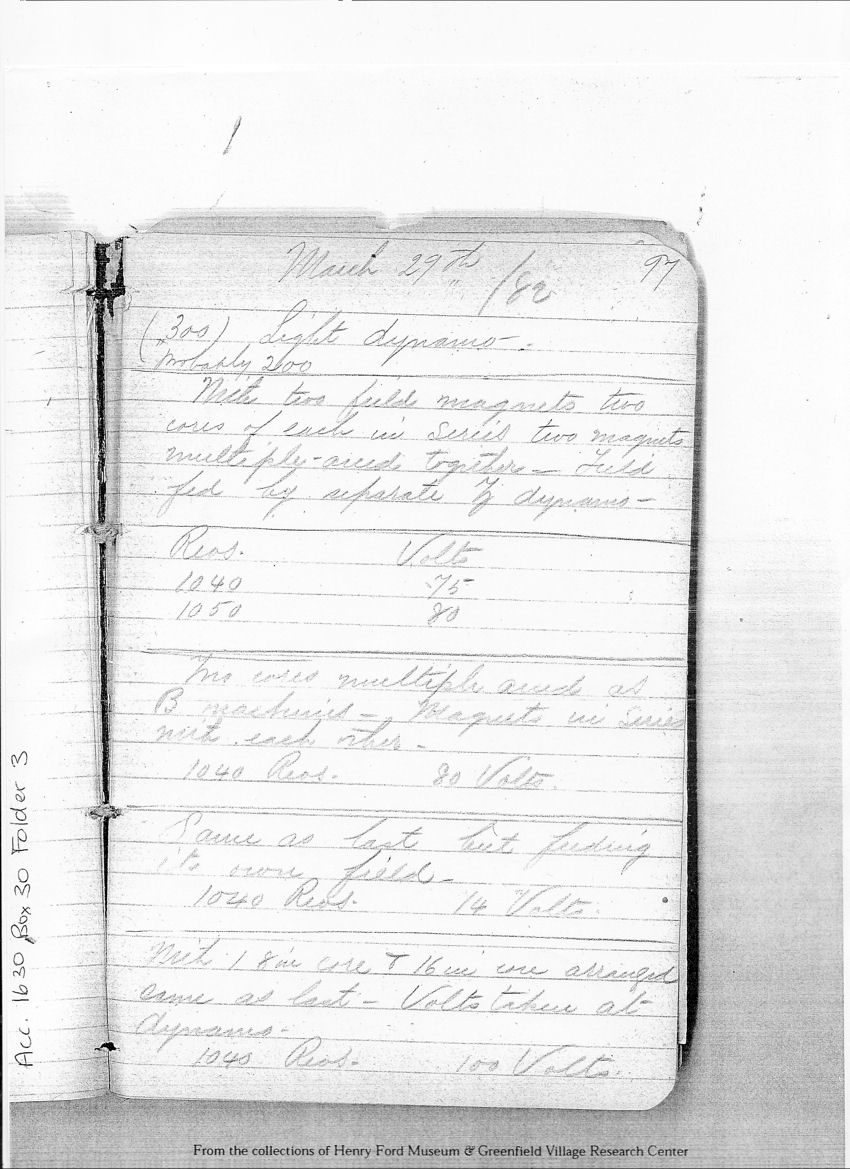 March 29th /82
97
(300) Light dynamo-.
Probably 200
With two field magnets two
cores of each in Series two magnets
multiple-arced together - Field
fed by separate Z dynamo-
Revs. Volts
1040 75
1050 80
Two cores multiple arced as
B machines - Magnets in Series
with each other -
1040 Revs. 80 Volts.
Same as last but feeding
its own field -
1040 Revs. 14 Volts.
With 1 8 in core & 1 6 in core arranged
same as last - Volts taken at
dynamo-
1040 Revs. 100 Volts.
Acc. 1630 Box 30 Folder 3
From the collections of Henry Ford Museum & Greenfield Village Research Center